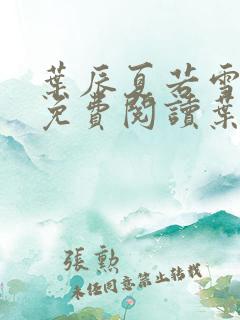 葉辰夏若雪
免費閱讀葉
張勲
未經同意禁止轉載